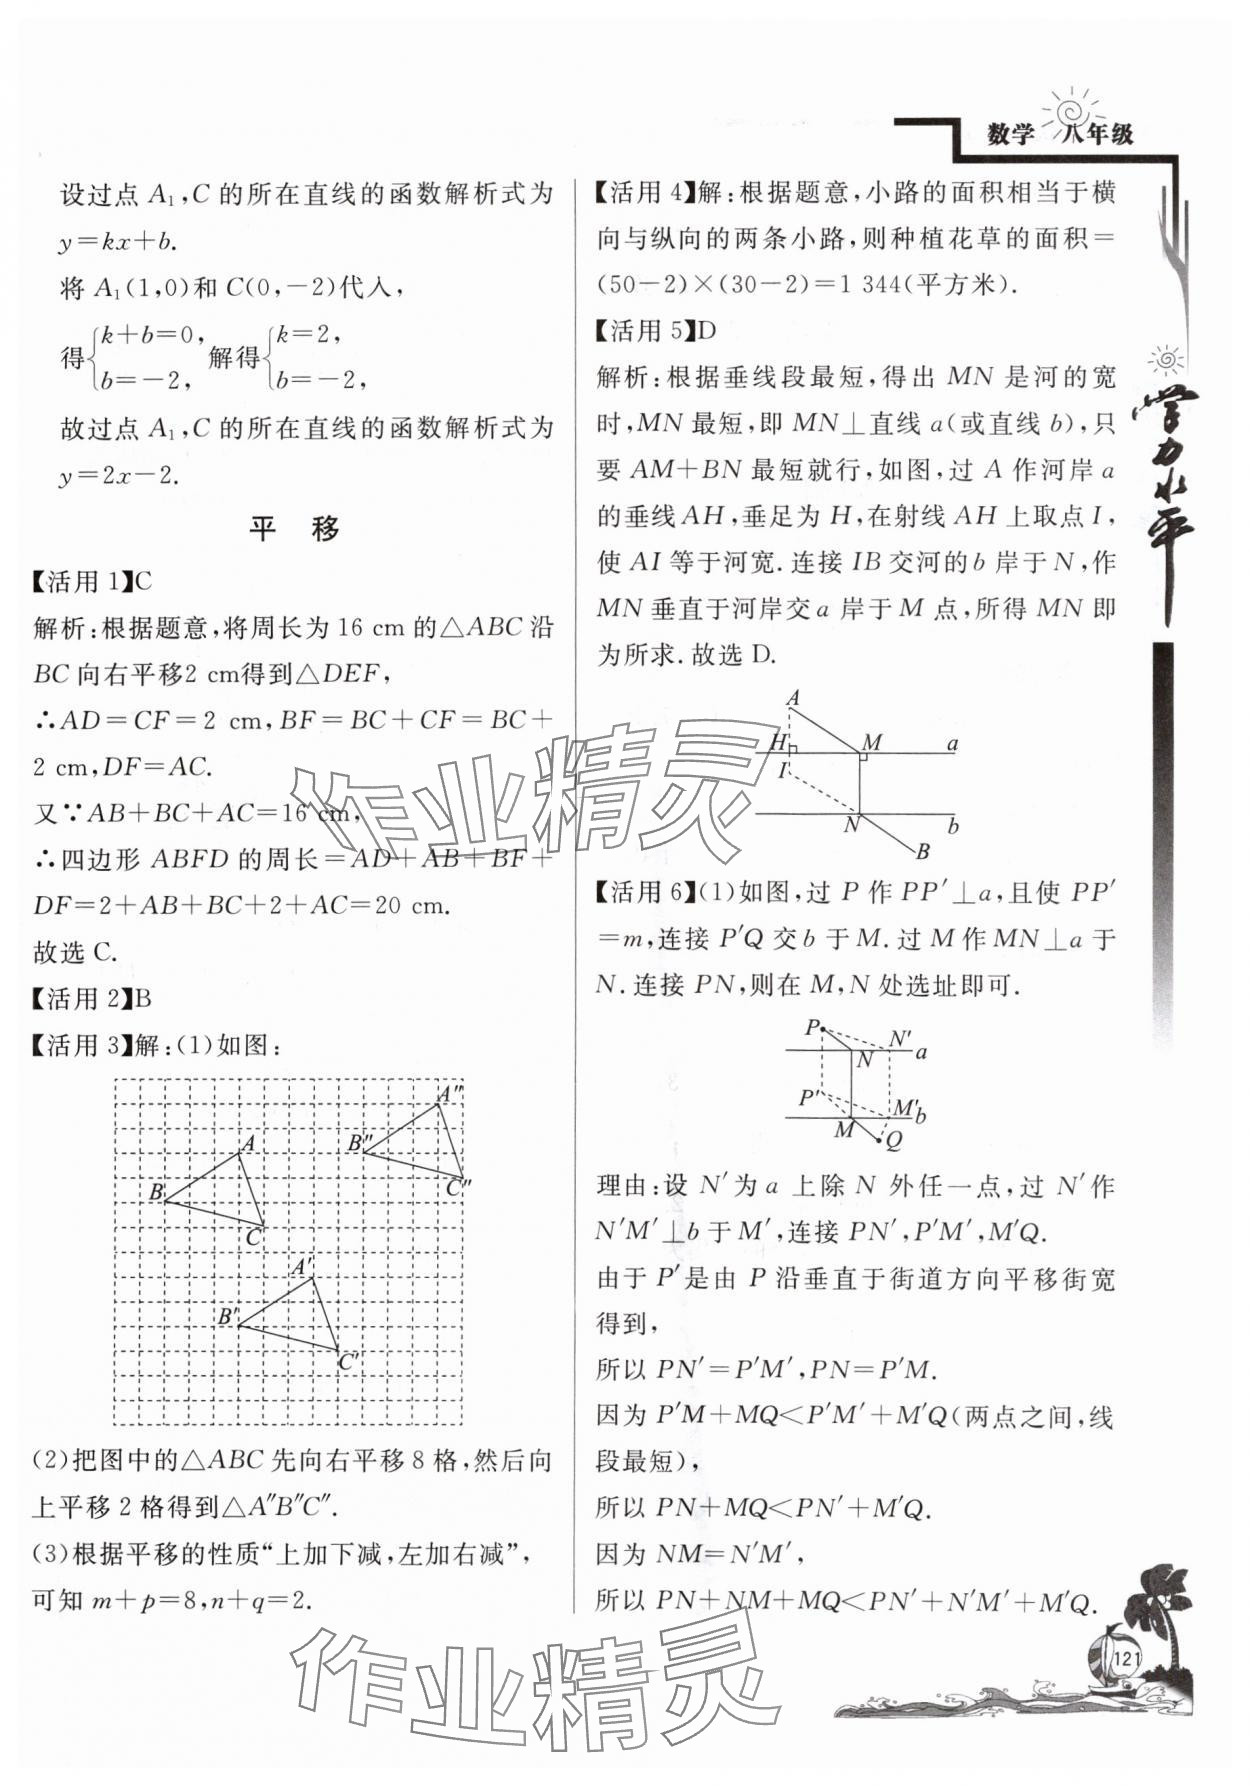 数学 八年级
设过点 A₁,C 的所在直线的函数解析式为
y=kx+b.
将 A₁(1,0)和 C(0,-2)代入,
得{k+b=0, b=-2, 解得{k=2, b=-2,
故过点 A₁,C 的所在直线的函数解析式为
y=2x-2.
平 移
【活用 1】C
解析:根据题意,将周长为 16 cm 的△ABC 沿
BC 向右平移2 cm得到△DEF,
∴AD=CF=2 cm,BF=BC+CF=BC+
2 cm,DF=AC.
又∵AB+BC+AC=16 cm,
∴四边形 ABFD 的周长=AD+AB+BF+
DF=2+AB+BC+2+AC=20 cm.
故选 C.
【活用 2】B
【活用 3】解:(1)如图:
A″
B″
C″
A
B
C
A′
B″
C′
(2)把图中的△ABC 先向右平移 8 格,然后向
上平移 2 格得到△A″B″C″.
(3)根据平移的性质“上加下减,左加右减”,
可知 m+p=8,n+q=2.
【活用 4】解:根据题意,小路的面积相当于横
向与纵向的两条小路,则种植花草的面积=
(50-2)×(30-2)=1 344(平方米).
【活用 5】D
解析:根据垂线段最短,得出 MN 是河的宽
时,MN 最短,即 MN⊥直线 a(或直线 b),只
要 AM+BN 最短就行,如图,过 A 作河岸 a
的垂线 AH,垂足为 H,在射线 AH 上取点 I,
使 AI 等于河宽.连接 IB 交河的b 岸于 N,作
MN 垂直于河岸交a 岸于 M 点,所得 MN 即
为所求.故选 D.
A
H M a
I
N b
B
【活用 6】(1)如图,过 P 作 PP′⊥a,且使 PP′
=m,连接 P′Q 交 b 于 M.过 M 作 MN⊥a 于
N.连接 PN,则在 M,N 处选址即可.
P N′
N a
P′ M′
M b
Q
理由:设 N′为 a 上除 N 外任一点,过 N′作
N′M′⊥b 于 M′,连接 PN′,P′M′,M′Q.
由于 P′是由 P 沿垂直于街道方向平移街宽
得到,
所以 PN′=P′M′,PN=P′M.
因为 P′M+MQ<P′M′+M′Q(两点之间,线
段最短),
所以 PN+MQ<PN′+M′Q.
因为 NM=N′M′,
所以 PN+NM+MQ<PN′+N′M′+M′Q.
学力水平
121
作业精灵
作业精灵